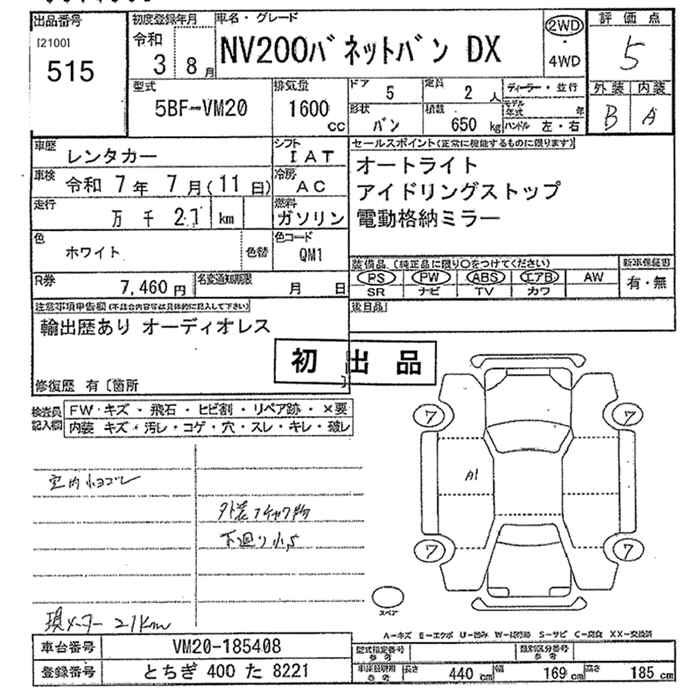 出品番号 初度登録年月 車名・グレード 2WD 評価点
[2100] 令和 ・
515 3年 8月 NV200バネットバン DX 4WD 5
型式 排気量 ドア 5 定員 2人 ディーラー・並行 外装 内装
5BF-VM20 1600cc 形状 バン 積載 650kg モデル年式 年 B A
ハンドル 左・右
車歴 レンタカー シフト IAT セールスポイント(正常に機能するものに限ります)
車検 令和 7年 7月(11日) 冷房 AC オートライト
走行 万 千 2.1 km 燃料 ガソリン アイドリングストップ
電動格納ミラー
色 ホワイト 色替 色コード QM1
装備品(純正品に限り○をつけてください) 新車保証書
R券 7,460円 名変通知期限 月 日 PS PW ABS エアB AW 有・無
SR ナビ TV カワ
注意事項申告欄(不具合内容等は具体的に記入して下さい) 後日品
輸出歴あり オーディオレス
初出品
修復歴 有〔箇所 〕
検査員記入欄 FW・キズ・飛石・ヒビ割・リペア跡・×要
内装 キズ・汚レ・コゲ・穴・スレ・キレ・破レ
ワ ワ
室内小ヨゴレ A1
下廻り小S
ワ ワ
スペア
現メーター 21km
A-キズ E-エクボ U-凹み W-補修跡 S-サビ C-腐食 XX-交換済
車台番号 VM20-185408 型式指定番号 参考 類別区分番号 参考
登録番号 とちぎ 400 た 8221 参考 長さ 440cm 幅 169cm 高さ 185cm